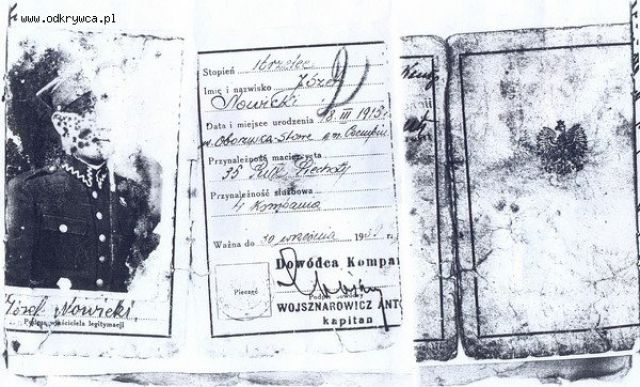 www.odkrywca.pl
Józef Nowicki
Podpis właściciela legitymacji
Stopień strzelec
Imię i nazwisko Józef
Nowicki
Data i miejsce urodzenia 18 III 1915 r.
Przynależność macierzysta
35 Pułk Piechoty
Przynależność służbowa
4 Kompania
Ważna do 30 września 19
Dowódca Kompa
Pieczęć
Podpis dowódcy
WOJSZNAROWICZ ANTO
kapitan